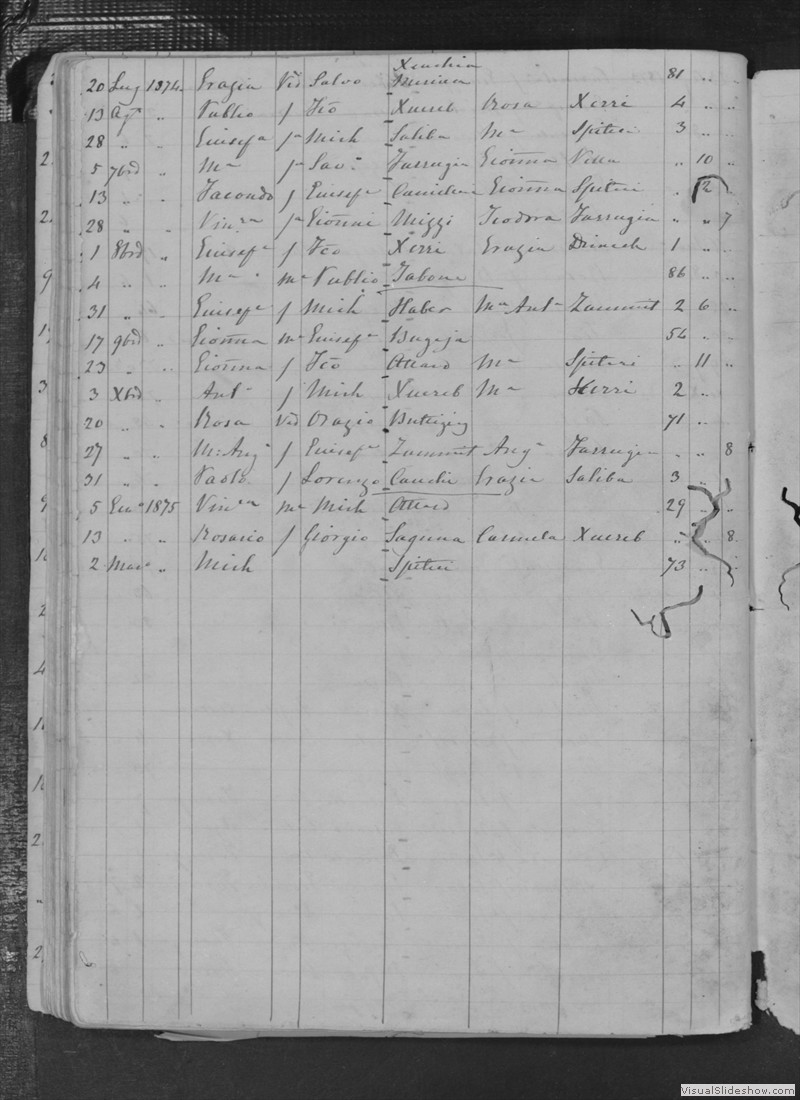 20 Lug 1874. Grazia Ved Salvo 81 „
13 Ag „ Publio f Fco Xuereb Rosa Xerri 4 „ „
28 „ „ Giusepa fa Mich Saliba Ma Spiteri 3 „ „
5 7bre „ Ma fa Sava Farrugia Gionna Villa „ 10 „
13 „ „ Facondo f Giusepe Gionna Spiteri „ 2 „
28 „ „ Vinza fa Gionni Mizzi Teodora Farrugia „ „ 7
1 8bre „ Giusepe f Fco Xerri Grazia Dimech 1 „ „
4 „ „ Ma Me Publio Tabone 86 „ „
31 „ „ Giusepe f Mich Haber Ma Anta Zammit 2 6 „
17 9bre „ Gionna Me Giusepe Bugeja 54 „ „
23 „ „ Gionna f Fco Attard Ma Spiteri „ 11 „
3 Xbre „ Anto f Mich Xuereb Ma Xerri 2 „
20 „ „ Rosa Ved Orazio Buttigieg 71 „
27 „ „ Ma Anga f Giusepe Zammit Anga Farrugia „ „ 8
31 „ „ Paolo f Lorenzo Cauchi Grazia Saliba 3 „
5 Geno 1875 Vinca Me Mich Attard 29 „ „
13 „ „ Rosario f Giorgio Laguna Carmela Xuereb „ „ 8
2 Maro „ Mich Spiteri 73 „ „
VisualSlideshow.com